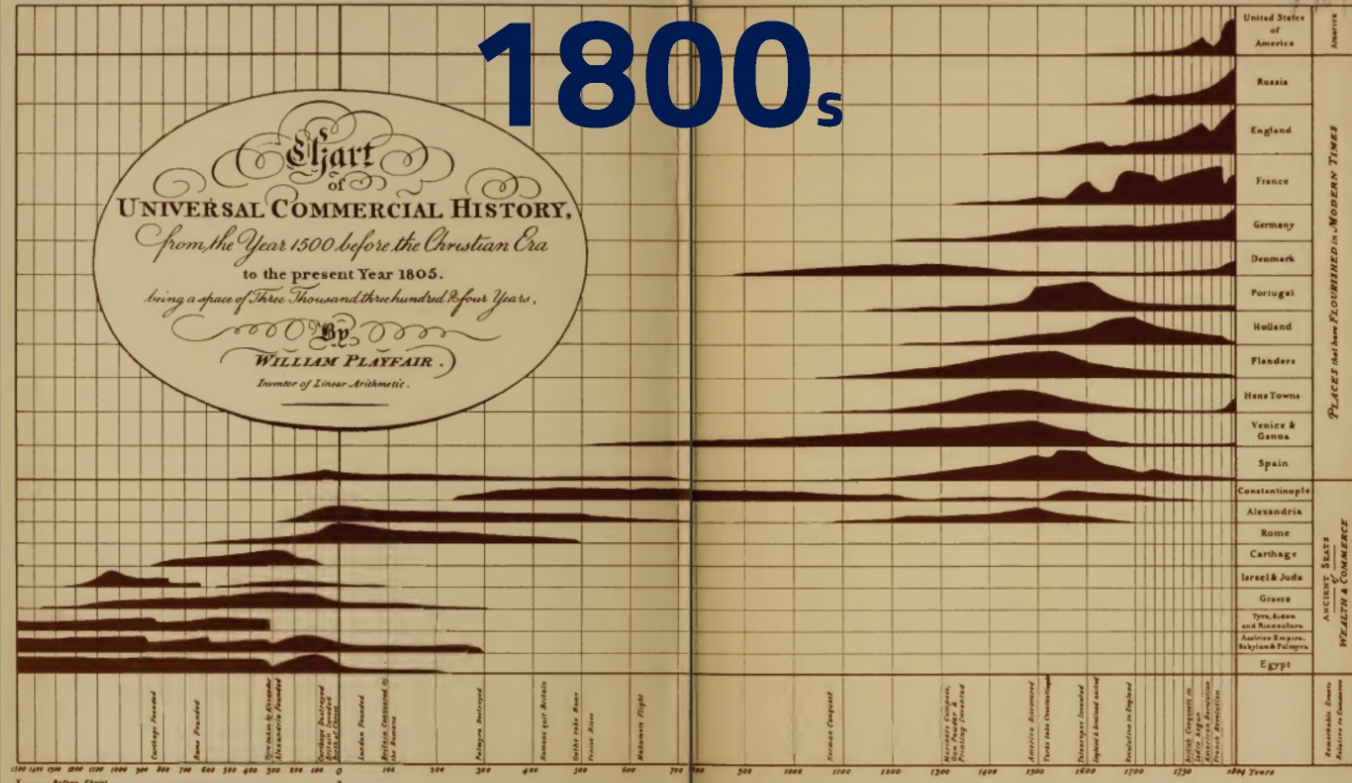 1800s
Chart
of
UNIVERSAL COMMERCIAL HISTORY,
from the Year 1500 before the Christian Era
to the present Year 1805.
being a space of Three Thousand three hundred & four Years,
By
WILLIAM PLAYFAIR.
Inventor of Linear Arithmetic.
United States
of
America
Russia
England
France
Germany
Denmark
Portugal
Holland
Flanders
Hans Towns
Venice &
Genoa
Spain
Constantinople
Alexandria
Rome
Carthage
Israel & Juda
Greece
Tyre, Sidon
and
Egypt
America
PLACES that have FLOURISHED in MODERN TIMES
ANCIENT SEATS
of
WEALTH & COMMERCE
Carthage Founded
Rome Founded
Tyre taken by Alexander
Alexandria Founded
Carthage Destroyed
Britain Invaded
Birth of Christ
London Founded
Britain Conquered by
the Romans
Palmyra Destroyed
Romans quit Britain
Goths take Rome
Venice Rises
Mahomets Flight
Norman Conquest
Mariners Compass,
Gun Powder &
Printing Invented
America Discovered
Turks take Constantinople
England & Scotland united
Revolution in England
American Revolution
French Revolution
Remarkable Events
Relative to Commerce
1500 1400 1300 1200 1100 1000 900 800 700 600 500 400 300 200 100 0 100 200 300 400 500 600 700 800 900 1000 1100 1200 1300 1400 1500 1600 1700 1750 1804 Years
Before Christ